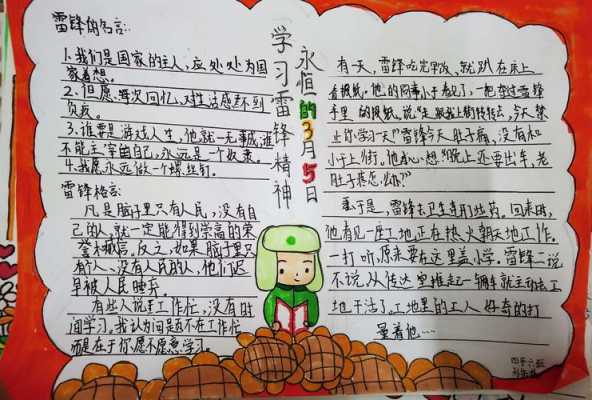 雷锋的名言:
1.我们是国家的主人，应处处为国
家着想。
2.但愿每次回忆,对生活感到不到
负疚。
3.谁要是游戏人生,他就一无事成,谁
不能主宰自己,永远是一个奴隶。
4.我愿永远做一个螺丝钉。
雷锋格言:
凡是脑子里只有人民,没有自
己的人,就一定能得到崇高的荣
誉和威信。反之,如果脑子里只
有个人、没有人民的人,他们迟
早被人民唾弃。
有些人说工作忙,没有时
间学习。我认为问题不在工作忙
而是在于你愿不愿意学习。
学习雷锋精神
永恒的3月5日
有一天,雷锋吃完早饭、就趴在床上
看报纸,他的同事小于看见了,一把夺过雷锋
手里的报纸,说:"走跟我上街转转去,今天禁
止你学习一天!"雷锋今天肚子痛,没有和
小于上街,他心想:"晚上还要出车,老
肚子疼怎么办?"
于是,雷锋去卫生连开了些药。回来时,
他看见一座工地正在热火朝天地工作。
一打听,原来要在这里盖小学。雷锋二话
不说,从传达室推起一辆车就主动去工
地干活了。工地里的工人好奇的打
量着他…
四年六班